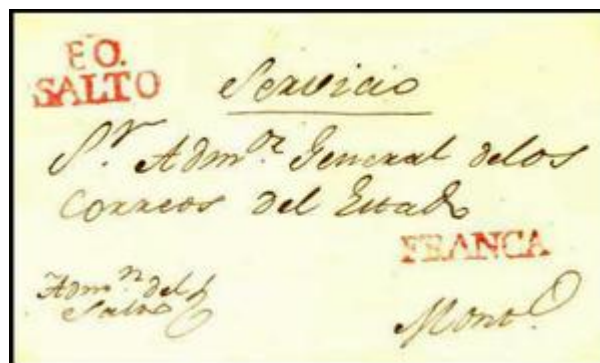 E O.
SALTO
Servicio
S.r Adm.or General delos
Correos del Estado
FRANCA
Adm.n del
Salto
Mont.o